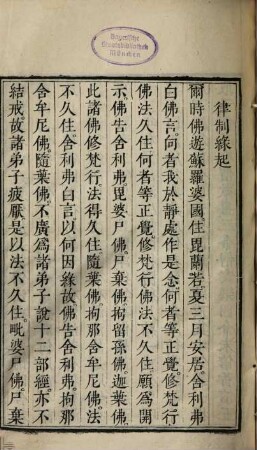 Bayerische
Staatsbibliothek
München
律制緣起
爾時佛遊蘇羅婆國住毘蘭若夏三月安居。舍利弗
白佛言。何者我於靜處作是念何者等正覺。修梵行
佛法久住何者等正覺修梵行佛法不久住願爲開
示。佛告舍利弗。毘婆尸佛。尸棄佛。拘留孫佛。迦葉佛。
此諸佛修梵行法得久住。隨葉佛。拘那含牟尼佛。法
不久住。舍利弗白言。以何因緣故。佛告舍利弗。拘那
含牟尼佛。隨葉佛。不廣爲諸弟子說十二部經。亦不
結戒故。諸弟子疲厭。是以法不久住。毗婆尸佛。尸棄